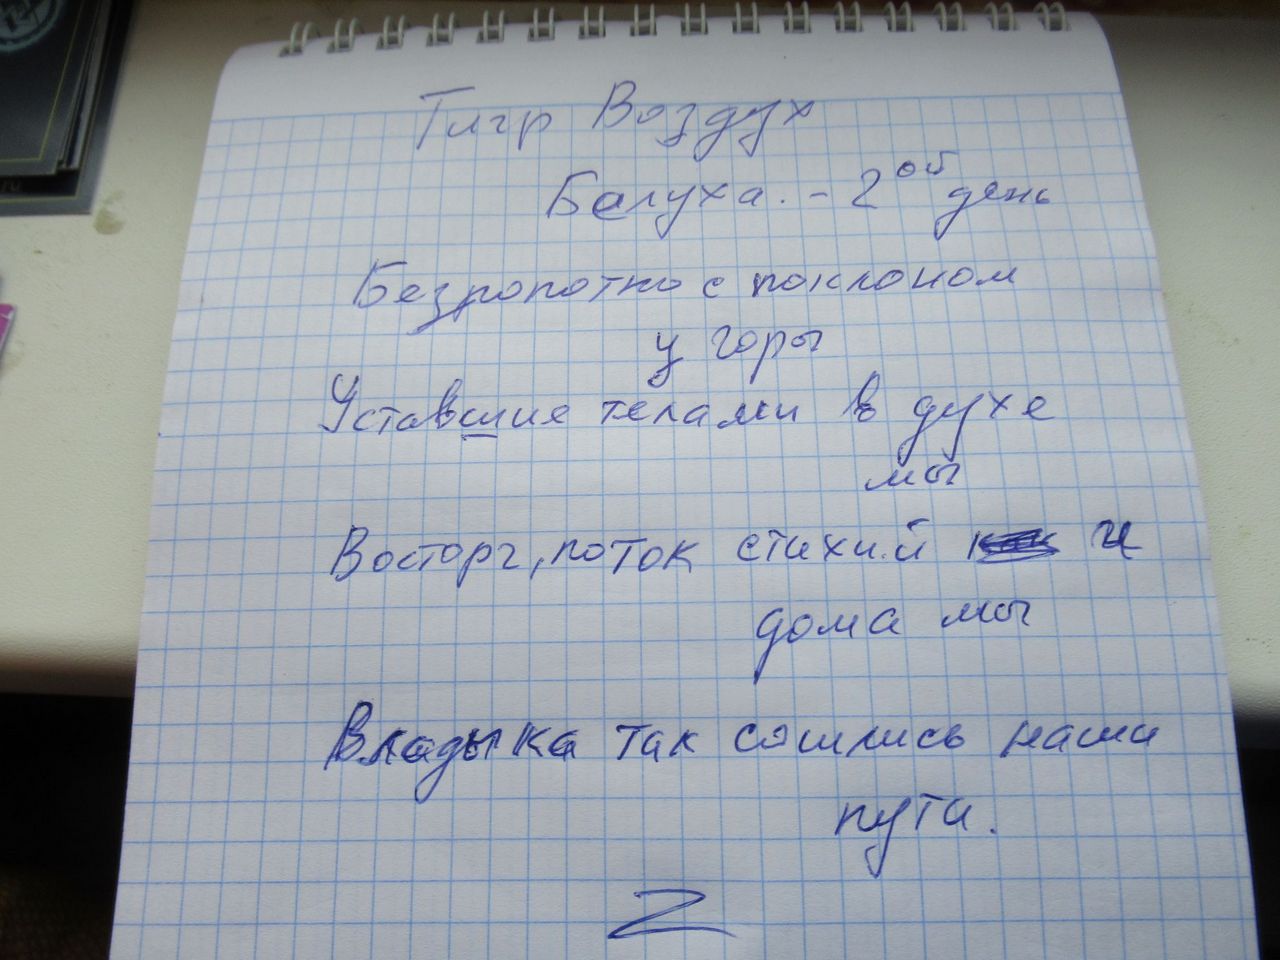 Тигр Воздух
Белуха. - 2ой день
Безропотно с поклоном
у горы
Уставшие телами в духе
мы
Восторг, поток стихий и
дома мы
Владыка так сошлись наши
пути.